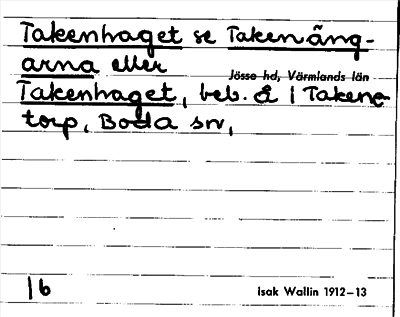 Takenhaget se Takenäng-
arna eller
Jösse hd, Värmlands län
Takenhaget, beb. Å i Takene-
torp, Boda sn,
16
Isak Wallin 1912–13